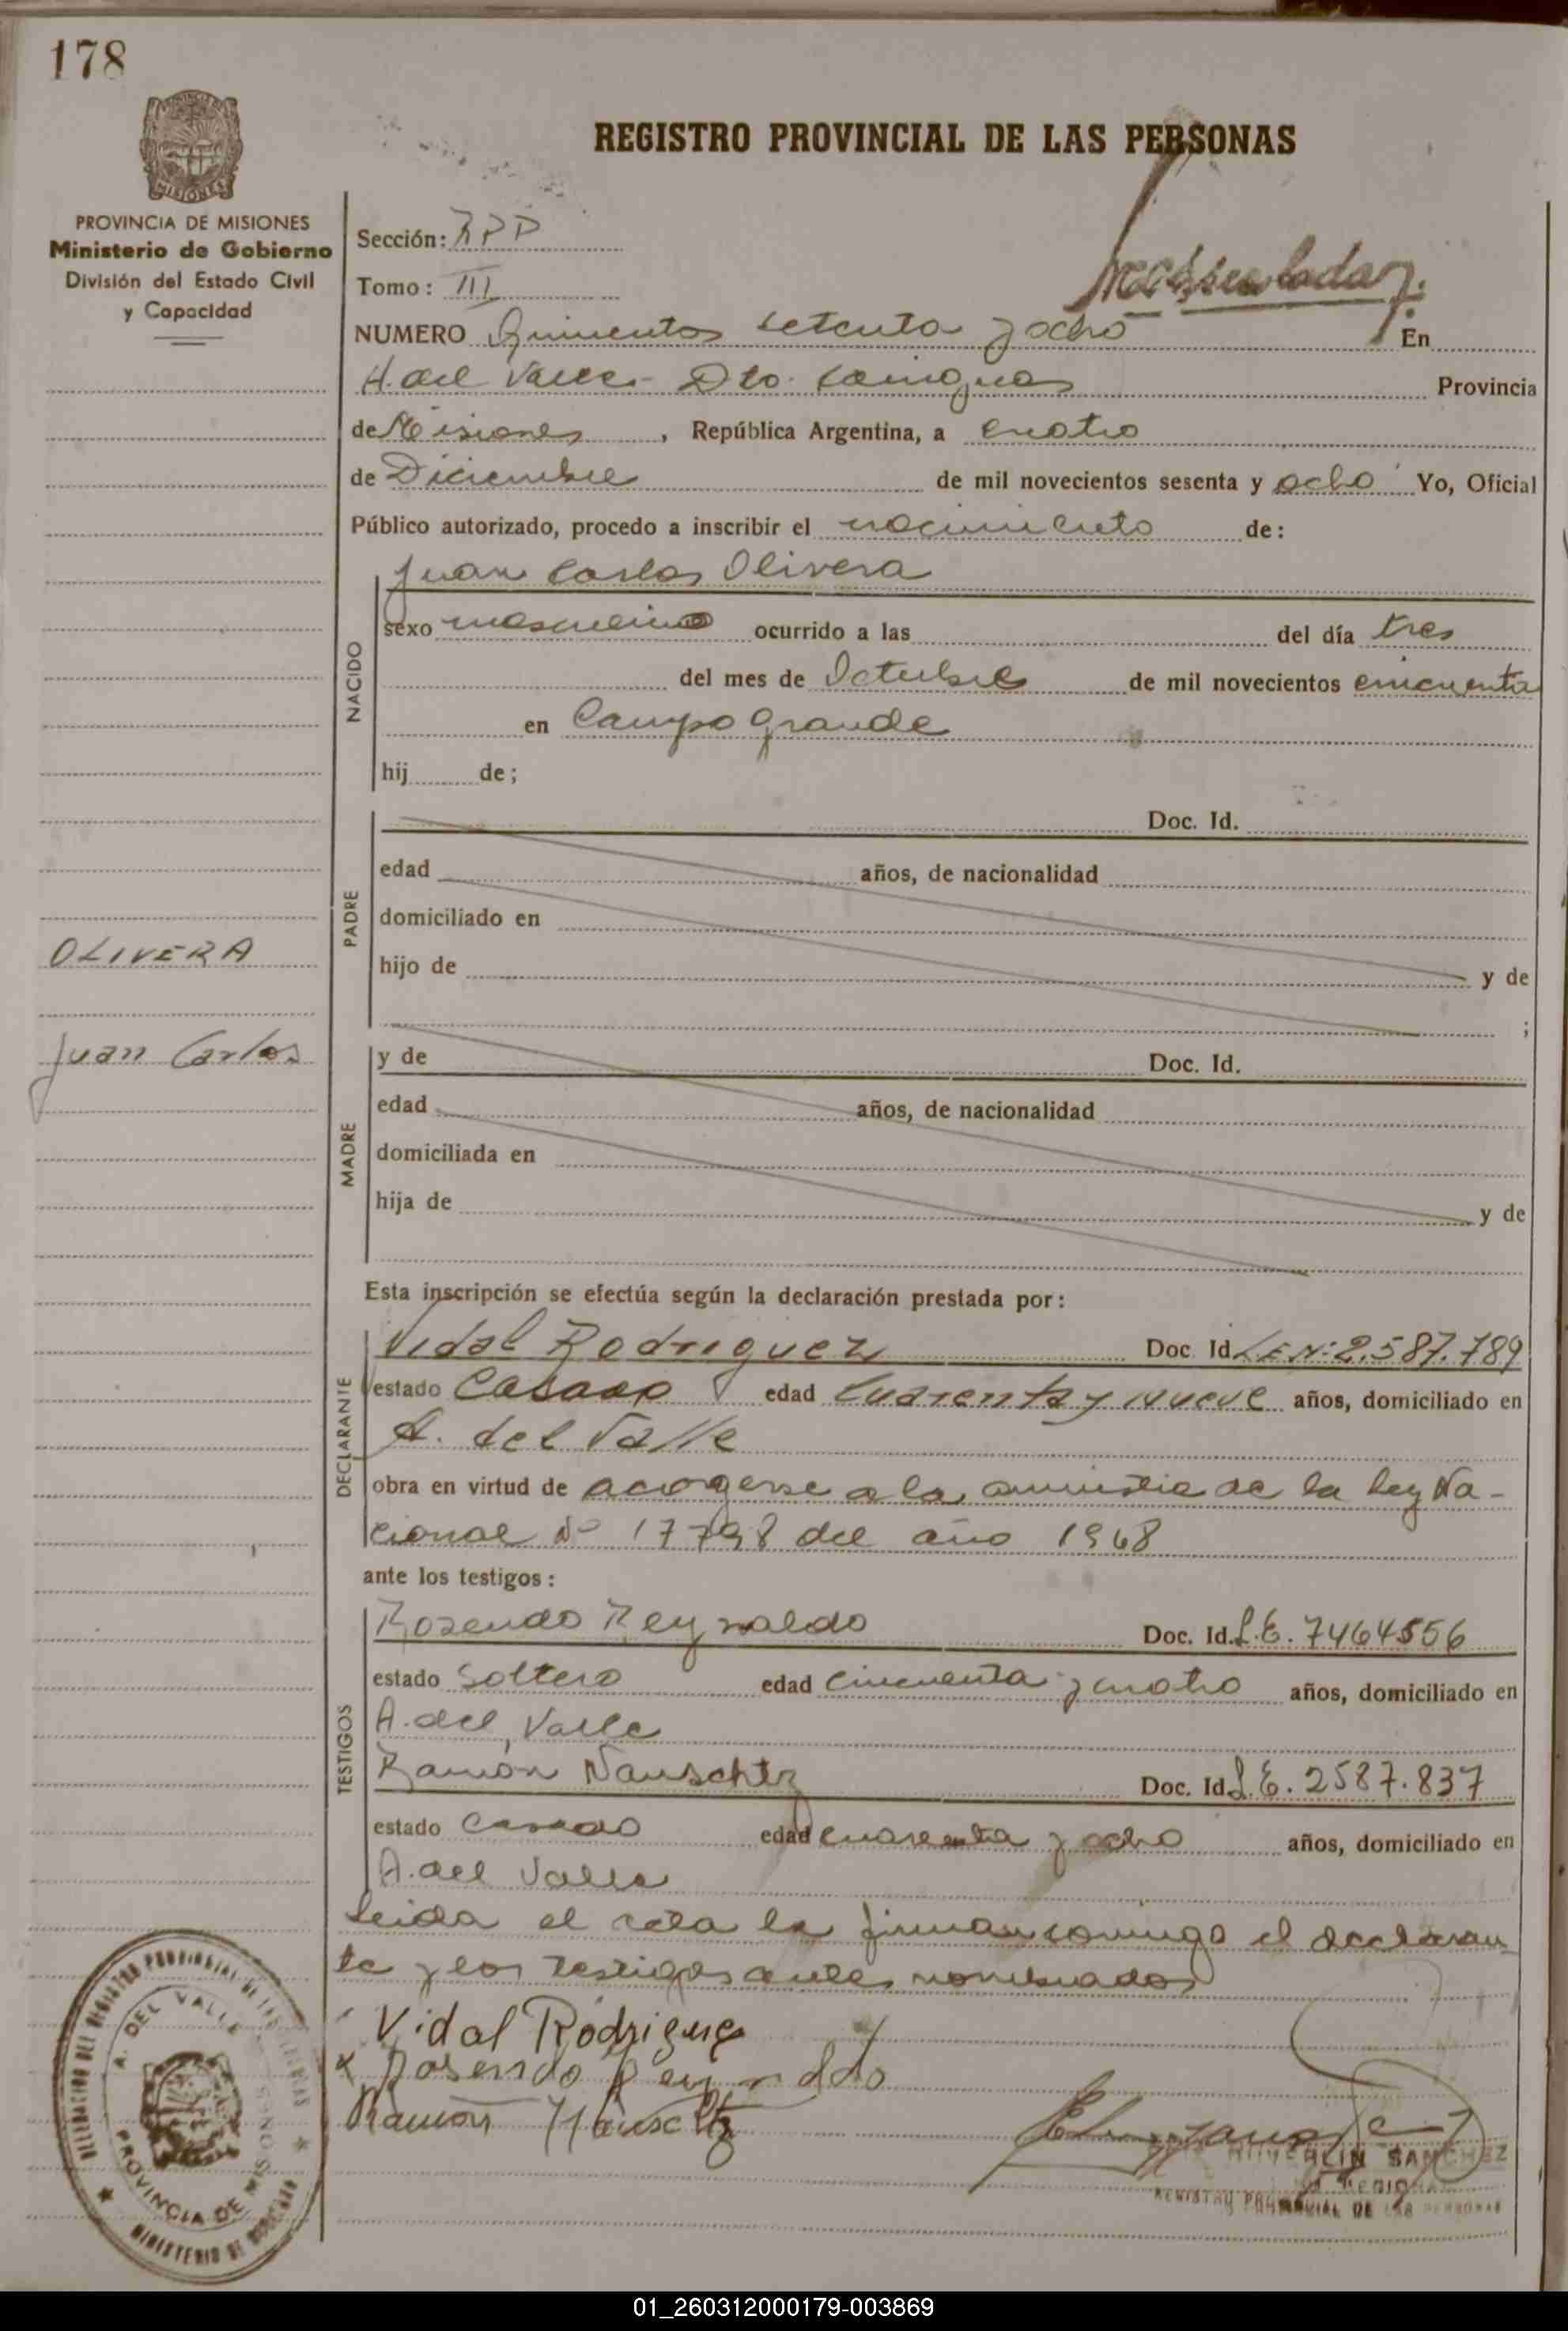 178
REGISTRO PROVINCIAL DE LAS PERSONAS
MISIONES
PROVINCIA DE MISIONES
Ministerio de Gobierno
División del Estado Civil
y Capacidad
Sección: RPP
Tomo: III
NUMERO Quinientos setenta y ocho En
A. del Valle - Dto. Cainguas Provincia
de Misiones, República Argentina, a cuatro
de Diciembre de mil novecientos sesenta y ocho Yo, Oficial
Público autorizado, procedo a inscribir el nacimiento de:
NACIDO
Juan Carlos Olivera
sexo masculino ocurrido a las del día tres
del mes de Octubre de mil novecientos cincuenta
en Campo Grande
hij de;
PADRE
Doc. Id.
edad años, de nacionalidad
domiciliado en
hijo de y de
;
OLIVERA
Juan Carlos
MADRE
y de Doc. Id.
edad años, de nacionalidad
domiciliada en
hija de y de
Esta inscripción se efectúa según la declaración prestada por:
DECLARANTE
Vidal Rodriguez Doc. Id. L.E.Nº 2.587.789
estado Casado edad Cuarenta y nueve años, domiciliado en
A. del Valle
obra en virtud de acogerse a la amnistia de la ley Na-
cional Nº 17798 del año 1968
ante los testigos:
TESTIGOS
Rosendo Reynaldo Doc. Id. L.E. 7464556
estado Soltero edad cincuenta y cuatro años, domiciliado en
A. del Valle
Ramón Nauschtz Doc. Id. L.E. 2587.837
estado Casado edad cuarenta y ocho años, domiciliado en
A. del Valle
Leida el acta la firman conmigo el declaran-
te y los testigos antes nombrados
Vidal Rodrigue
x Rosendo Reynaldo
Ramón Nauschtz
SANCHEZ
REGISTRO PROVINCIAL DE LAS PERSONAS
DELEGACION DEL REGISTRO PROVINCIAL DE LAS PERSONAS
A. DEL VALLE
PROVINCIA DE MISIONES
MINISTERIO DE GOBIERNO
01_260312000179-003869